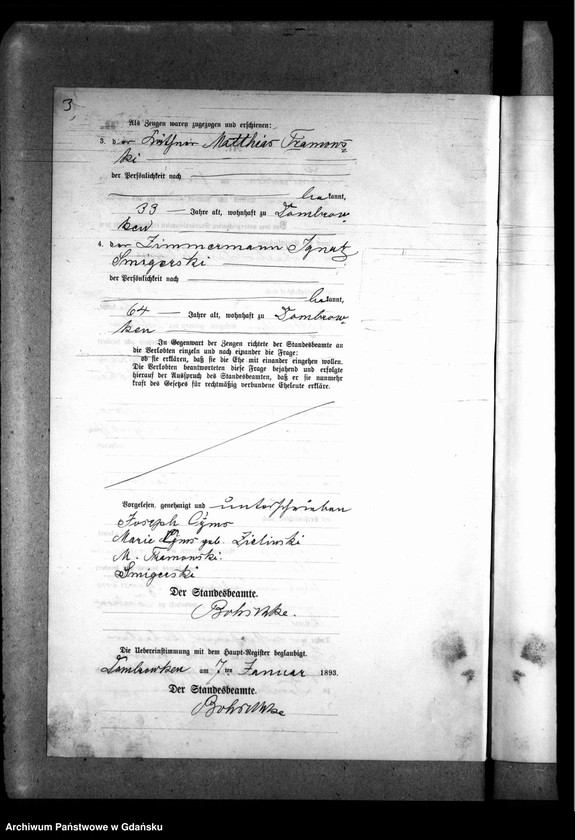 3,
Als Zeugen waren zugezogen und erschienen:
3. der Käthner Matthias Tramows
ki
der Persönlichkeit nach
bekannt,
39 Jahre alt, wohnhaft zu Dombrow
ken
4. der Zimmermann Ignatz
Smigerski
der Persönlichkeit nach
bekannt,
64 Jahre alt, wohnhaft zu Dombrow
ken
In Gegenwart der Zeugen richtete der Standesbeamte an
die Verlobten einzeln und nach einander die Frage:
ob sie erklären, daß sie die Ehe mit einander eingehen wollen.
Die Verlobten beantworteten diese Frage bejahend und erfolgte
hierauf der Ausspruch des Standesbeamten, daß er sie nunmehr
kraft des Gesetzes für rechtmäßig verbundene Eheleute erkläre.
Vorgelesen, genehmigt und unterschrieben
Joseph Cyms
Marie Cyms geb. Zielinski
M. Tramowski.
Smigerski
Der Standesbeamte.
Die Uebereinstimmung mit dem Haupt-Register beglaubigt.
Dombrowken am 7ten Januar 1893.
Der Standesbeamte.
Archiwum Państwowe w Gdańsku